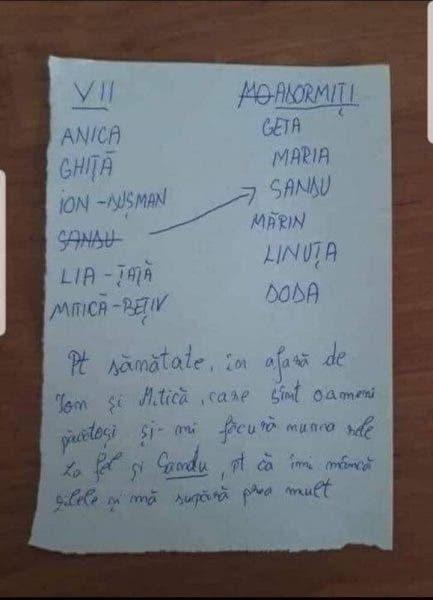 VII
ANICA
GHIȚĂ
ION - DUȘMAN
SANDU
LIA - ȚAȚĂ
MITICĂ - BEȚIV
MO ADORMIȚI
GETA
MARIA
SANDU
MĂRIN
LINUȚA
DODA
Pt sămătate, în afară de
Ion și Mitică, care sînt oameni
păcătoși și-mi făcură numa rele
La fel și Sandu, pt că îmi mâncă
zilele și mă supără prea mult